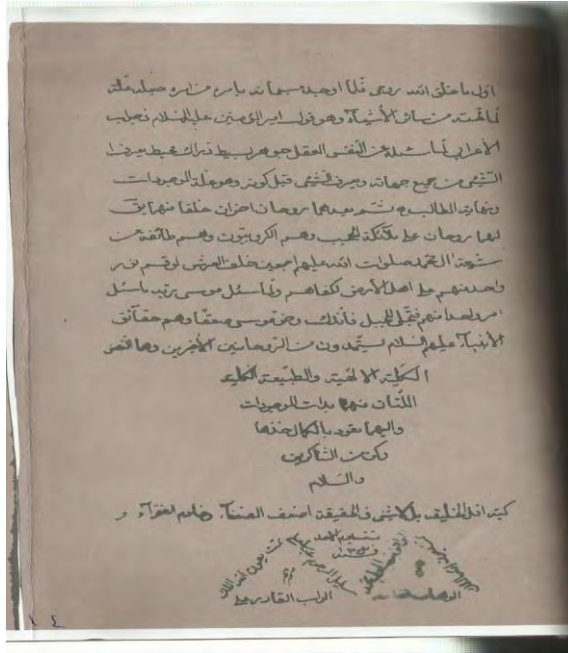 اول ما خلق الله روحي فلما اوجده سبحانه بامره من امره جعله علة
لما تحته من سائر الأشياء وهو قول امير المؤمنين عليه السلام في جواب
الأعرابي لما سئله عن النفس العقل جوهر بسيط دراك محيط يعرف
الشيئ من جميع جهاته ويعرف الشيئ قبل كونه وهو علة الموجودات
ونهاية المطالب ثم بعدهما روحان اخران خلقا منهما يق
لهما روحان على ملائكة الحجب وهم الكروبيون وهم طائفة من
شيعة آل محمد صلوات الله عليهم اجمعين خلف العرش لو قسم نور
واحد منهم على اهل الأرض لكفاهم ولما سئل موسى ربه ما سئل
امر واحدا منهم فتجلى للجبل فاندك وخر موسى صعقا وهم حقائق
الأنبياء عليهم السلام يستمدون من الروحانيين الأخرين وهما النفس
الكلية الالهية والطبيعة الكلية
اللتان منهما بدات الموجودات
واليهما تعود بالكمال خذها
وكن من الشاكرين
والسلام
كتبه اقل الخليقه بل لا شيئ في الحقيقة اضعف الضعفاء خادم الفقراء و
الراب القادر على
٢٤